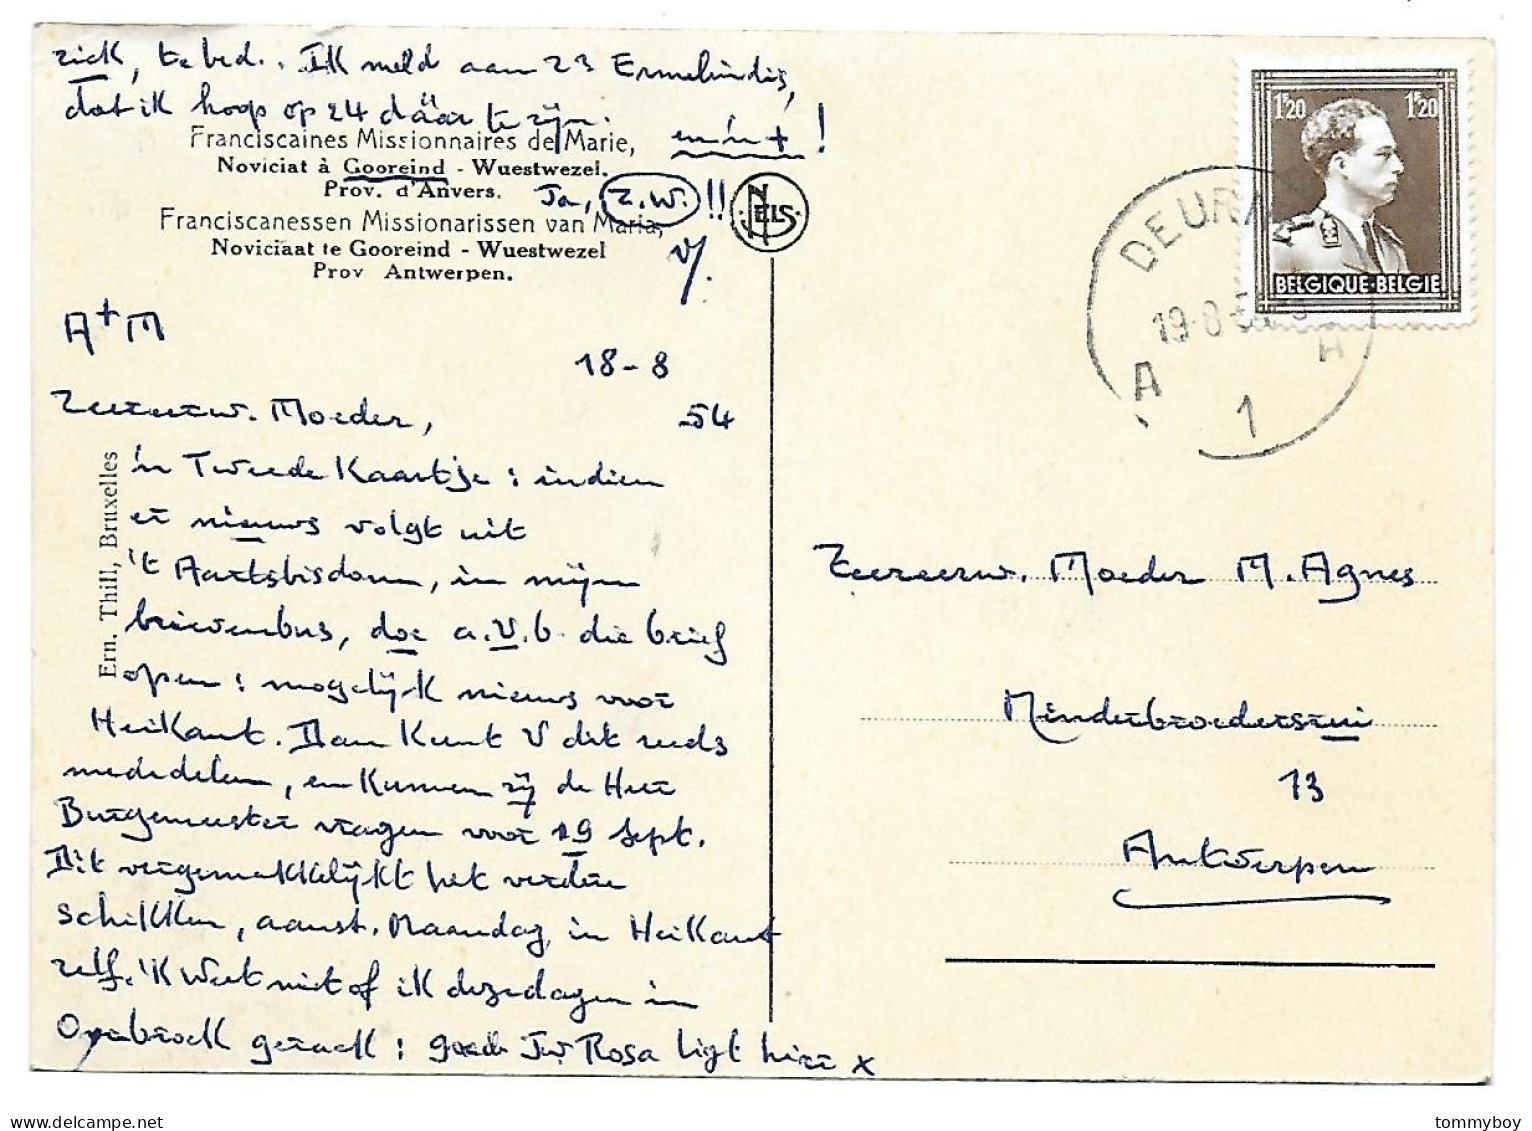 ziek, te bed.. Ik meld aan 23 Ermelindis,
dat ik hoop op 24 däär te zijn.
Franciscaines Missionnaires de Marie,
Noviciat à Gooreind - Wuestwezel.
Prov. d'Anvers.
Ja, Z.W. !!
Franciscanessen Missionarissen van Maria,
Noviciaat te Gooreind - Wuestwezel
Prov Antwerpen.
NELS
A + M
18-8
54
Zeereerw. Moeder,
'n Tweede Kaartje : indien
er nieuws volgt uit
't Aartsbisdom, in mijn
brievenbus, doe a.U.b. die brief
open : mogelijk nieuws voor
Heikant. Dan Kunt U dit reeds
mededelen, en Kunnen zij de Heer
Burgemeester vragen voor 19 Sept.
Dit vergemakkelijkt het verdere
schikken, aanst. Maandag, in Heikant
zelf. 'k Weet niet of ik dezedagen in
Opbroek geraak : goede Jw. Rosa ligt hier x
Ern. Thill, Bruxelles
1F20 1F20
BELGIQUE·BELGIE
DEURN
19-8-5
A A
1
Zeereerw. Moeder M. Agnes
Minderbroedersrui
13
Antwerpen
tommyboy
delcampe.net